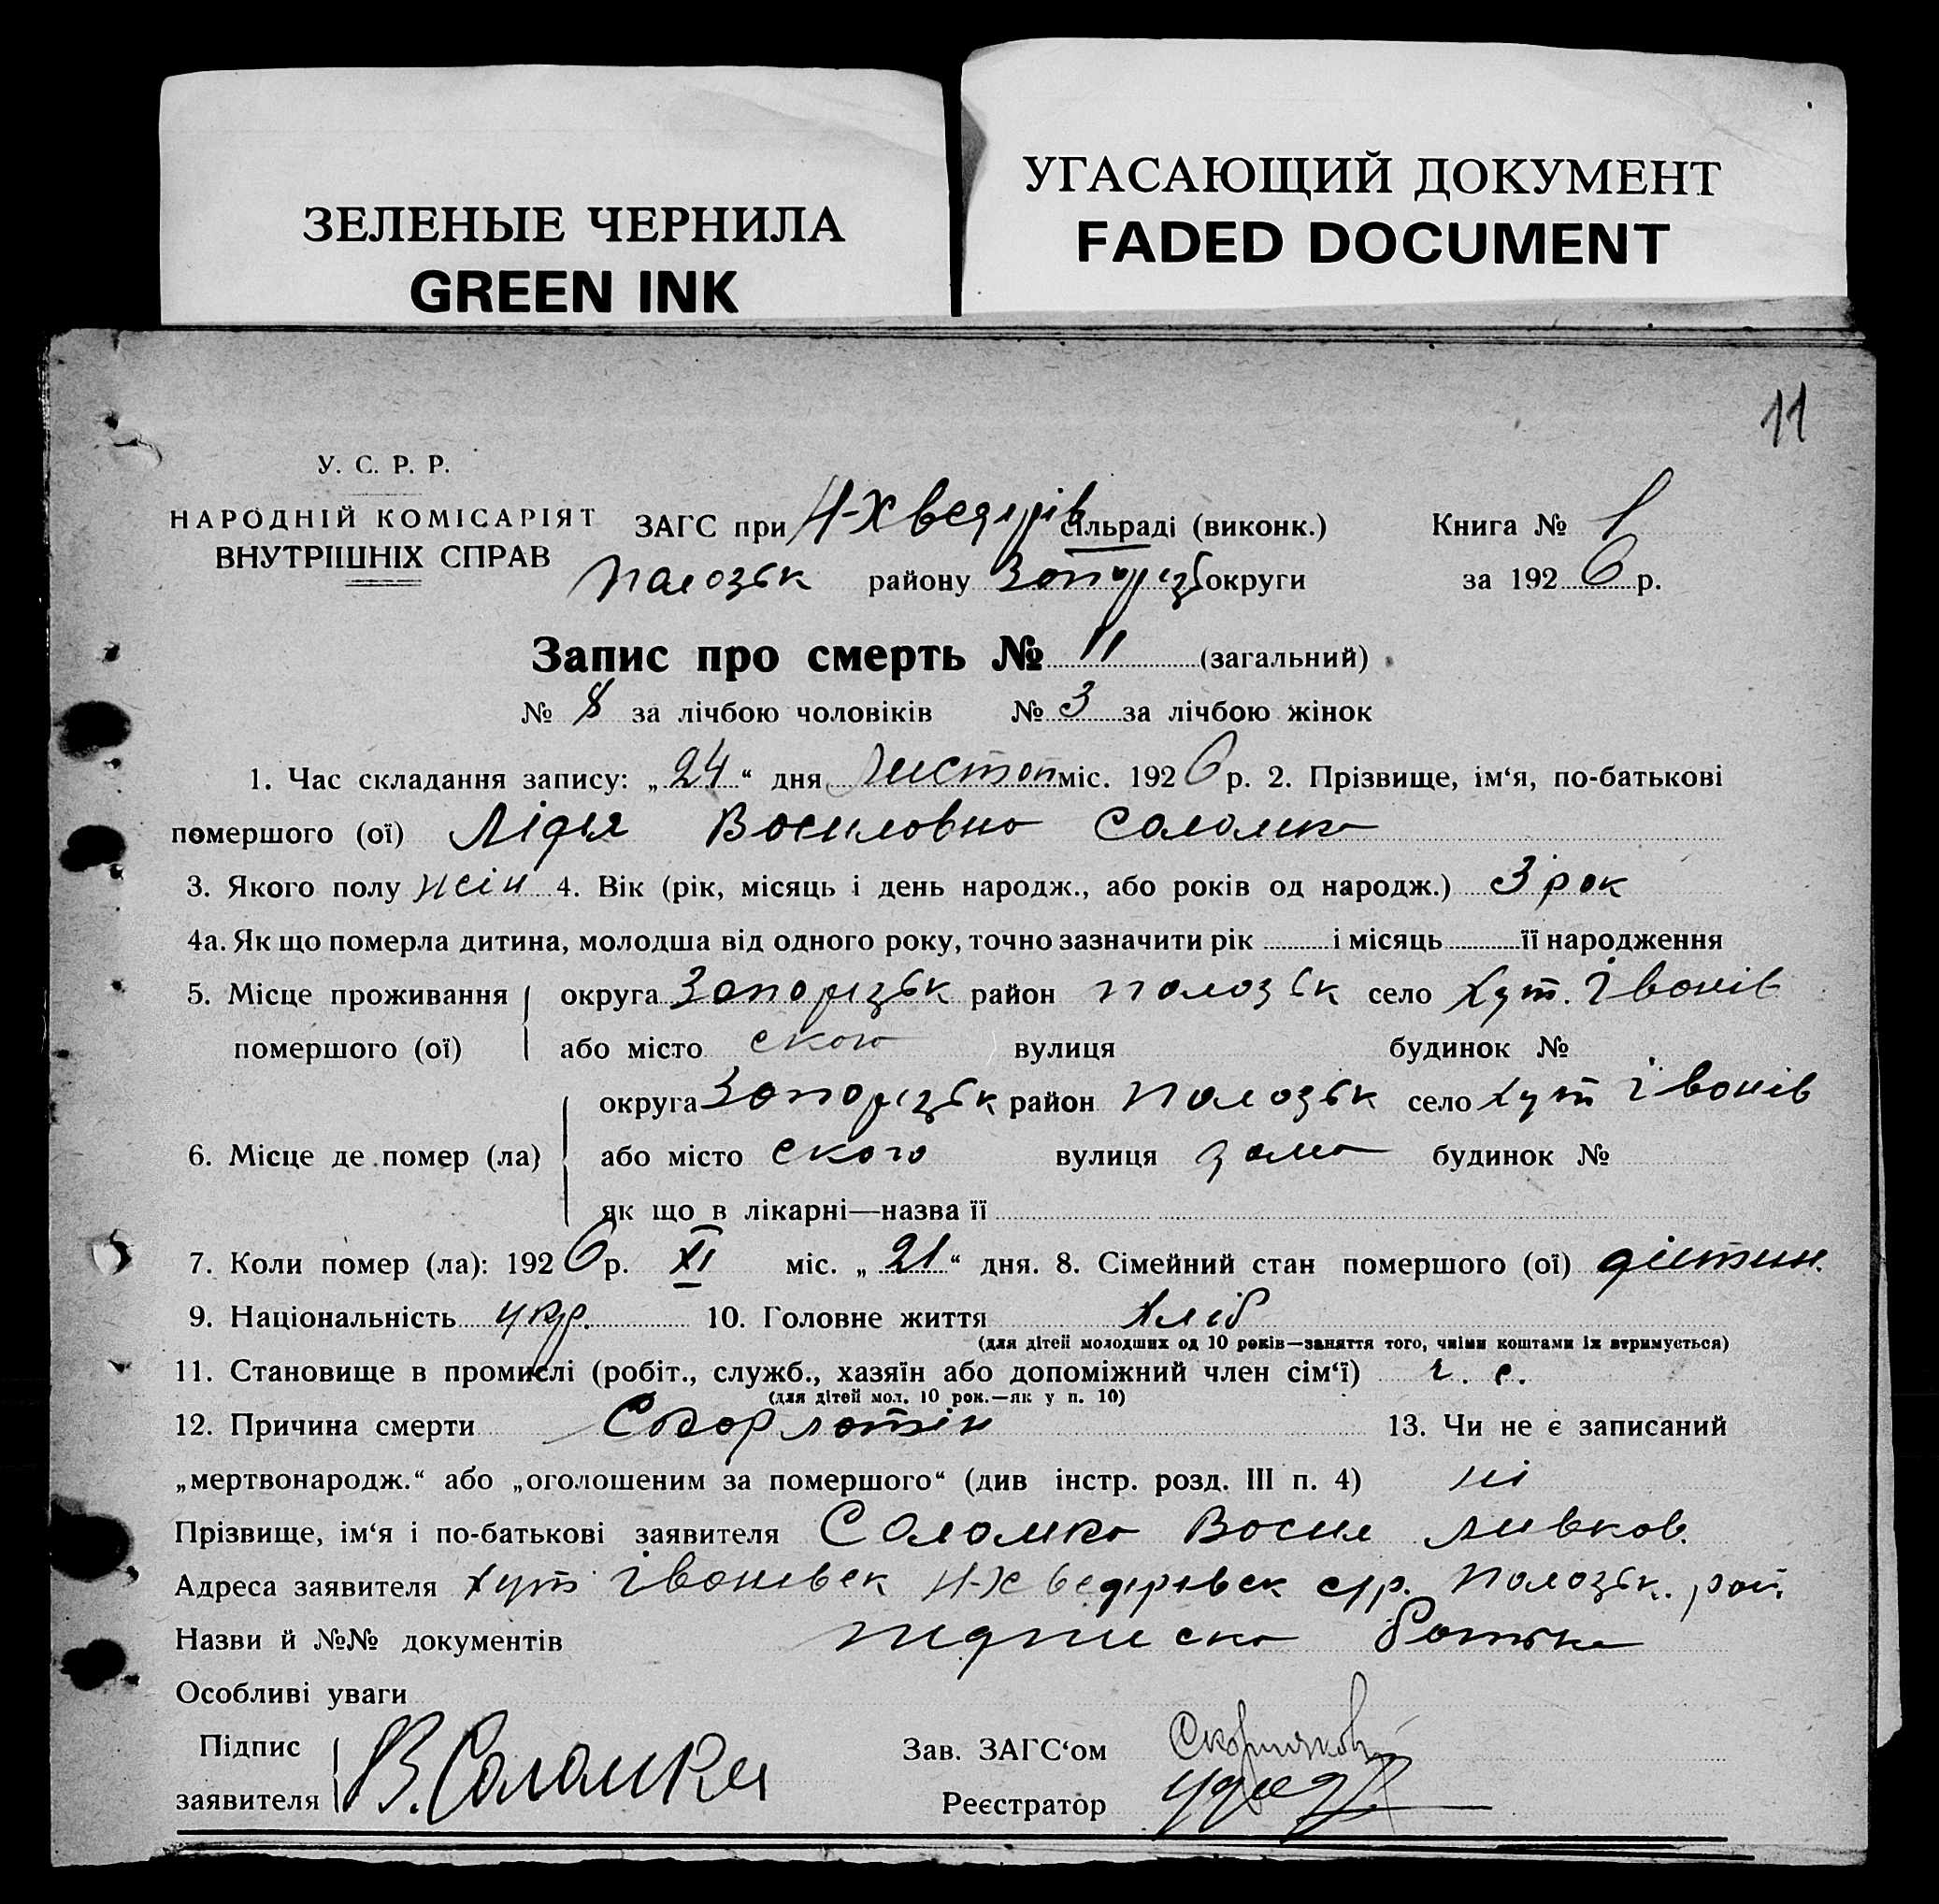 ЗЕЛЕНЫЕ ЧЕРНИЛА
GREEN INK
УГАСАЮЩИЙ ДОКУМЕНТ
FADED DOCUMENT
11
У. С. Р. Р.
НАРОДНІЙ КОМІСАРІЯТ
ВНУТРІШНІХ СПРАВ
ЗАГС при Н-Хведорів сільраді (виконк.) Книга № 1
Полозьк району Запорізь округи за 1926 р.
Запис про смерть № 11 (загальний)
№ 8 за лічбою чоловіків № 3 за лічбою жінок
1. Час складання запису: „24“ дня листоп міс. 1926 р. 2. Прізвище, ім‘я, по-батькові
помершого (ої) Лідія Василовна Соломка
3. Якого полу жін 4. Вік (рік, місяць і день народж., або років од народж.) 3 рок
4а. Як що померла дитина, молодша від одного року, точно зазначити рік і місяць її народження
5. Місце проживання округа Запорізьк район Полозьк село хут. Іванів
помершого (ої) або місто ского вулиця будинок №
округа Запорізьк район Полозьк село хут Іванів
6. Місце де помер (ла) або місто ского вулиця дома будинок №
як що в лікарні—назва її
7. Коли помер (ла): 1926 р. XI міс. „21“ дня. 8. Сімейний стан помершого (ої) дістин.
9. Національність укр. 10. Головне життя хліб
(для дітей молодших од 10 років—заняття того, чиїми коштами їх втримується)
11. Становище в промислі (робіт., служб., хазяїн або допоміжний член сім‘ї) ч. с.
(для дітей мол. 10 рок.—як у п. 10)
12. Причина смерти 13. Чи не є записаний
„мертвонародж.“ або „оголошеним за помершого“ (див інстр. розд. III п. 4) ні
Прізвище, ім‘я і по-батькові заявителя Соломка Васил Ливков.
Адреса заявителя хут Іванивск Н-Хведорівск с/р. Полозьк. рай.
Назви й №№ документів підписка батька
Особливі уваги
Підпис
заявителя В. Соломка
Зав. ЗАГС‘ом
Реєстратор